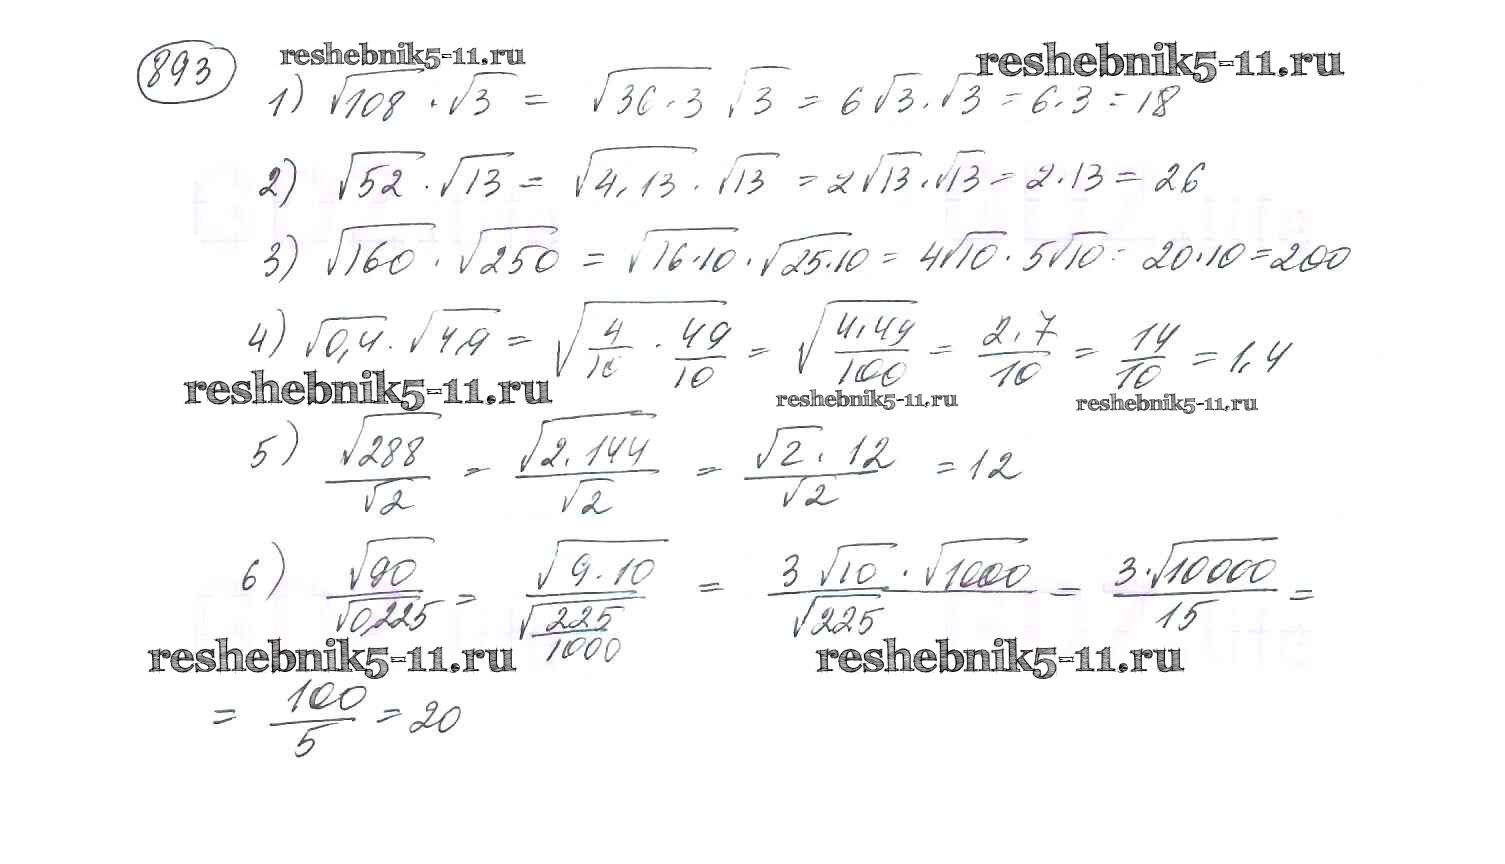 893 reshebnik5-11.ru reshebnik5-11.ru
1) √108 · √3 = √36·3 √3 = 6√3·√3 = 6·3 = 18
2) √52 · √13 = √4·13 · √13 = 2√13·√13 = 2·13 = 26
3) √160 · √250 = √16·10 · √25·10 = 4√10 · 5√10 = 20·10 = 200
4) √0,4 · √4,9 = √(4/10 · 49/10) = √(4·49/100) = 2·7/10 = 14/10 = 1,4
reshebnik5-11.ru reshebnik5-11.ru reshebnik5-11.ru
5) √288/√2 = √2·144/√2 = √2·12/√2 = 12
6) √90/√0,225 = √9·10/√(225/1000) = 3√10·√1000/√225 = 3·√10000/15 =
reshebnik5-11.ru reshebnik5-11.ru
= 100/5 = 20